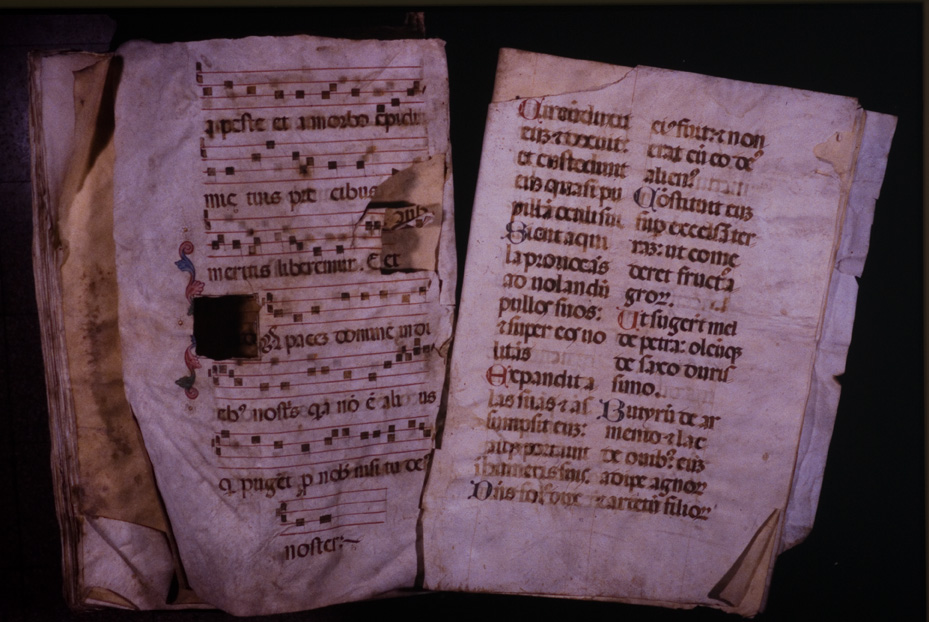 a peste et a morbo epidi
mie tuis pre cibus
meritis liberemur. Et
Da pacem domine in di
ebꝰ nostͥs qͣ nō ē ali us
qͥ pugͤt ꝓ nob̄ nisi tu deꝰ
noster:~
Circūduxit
eūꝫ ⁊ docuit:
et custodiuit
eūꝫ quasi pu
pillā oculi sui.
Sicut aqui
la prouocās
ad uolandū
pullos suos:
⁊ super eos uo
litās
Expandit a
las suas ⁊ as
sumpsit eūꝫ:
atqꝫ portauit
ī humeris suis.
Dn̄s solꝰ dux
eiꝰ fuit: ⁊ non
erat cū eo deꝰ
alienꝰ.
Cōstituit eūꝫ
suꝑ excelsā ter
rāꝫ: ut come
deret fructꝰ a
groꝝ.
Ut sugeret mel
de petra: oleūqꝫ
de saxo duris
simo.
Butyrū de ar
mento ⁊ lac
de ouibꝰ: cūꝫ
adipe agnoꝝ
⁊ arietū filioꝝ